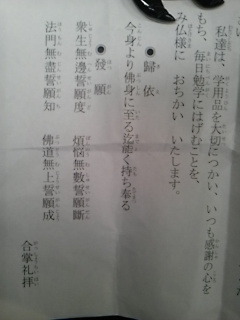 私達は、学用品を大切につかい、いつも感謝の心を
もち、毎日勉学にはげむことを、
み仏様に おちかい いたします。
●歸依
今身より佛身に至る迄能く持ち奉る
●發願
衆生無邊誓願度 煩悩無數誓願斷
法門無盡誓願知 佛道無上誓願成
合掌礼拝